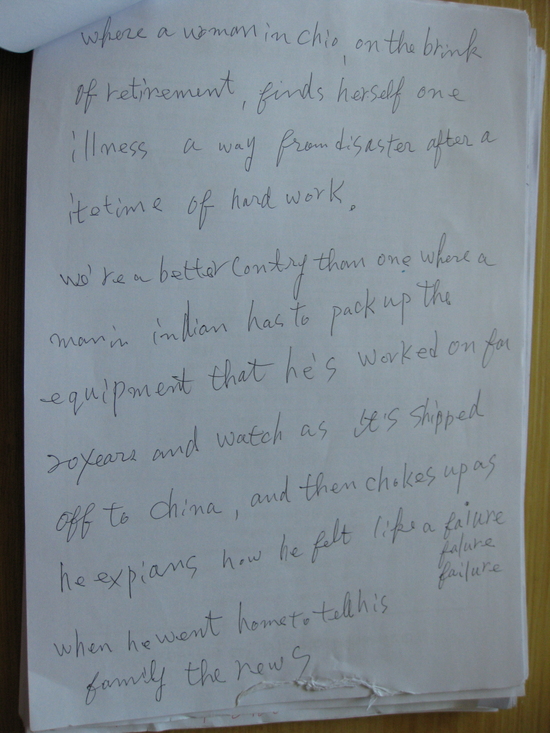 where a woman in chio, on the brink
of retirement, finds herself one
illness a way from disaster after a
itetime of hard work.
we're a better Contry than one where a
man in indian has to pack up the
equipment that he's worked on for
20 years and watch as it's shipped
off to China, and then chokes up as
he expians how he felt like a failure
falure
failure
when he went home to tell his
family the news